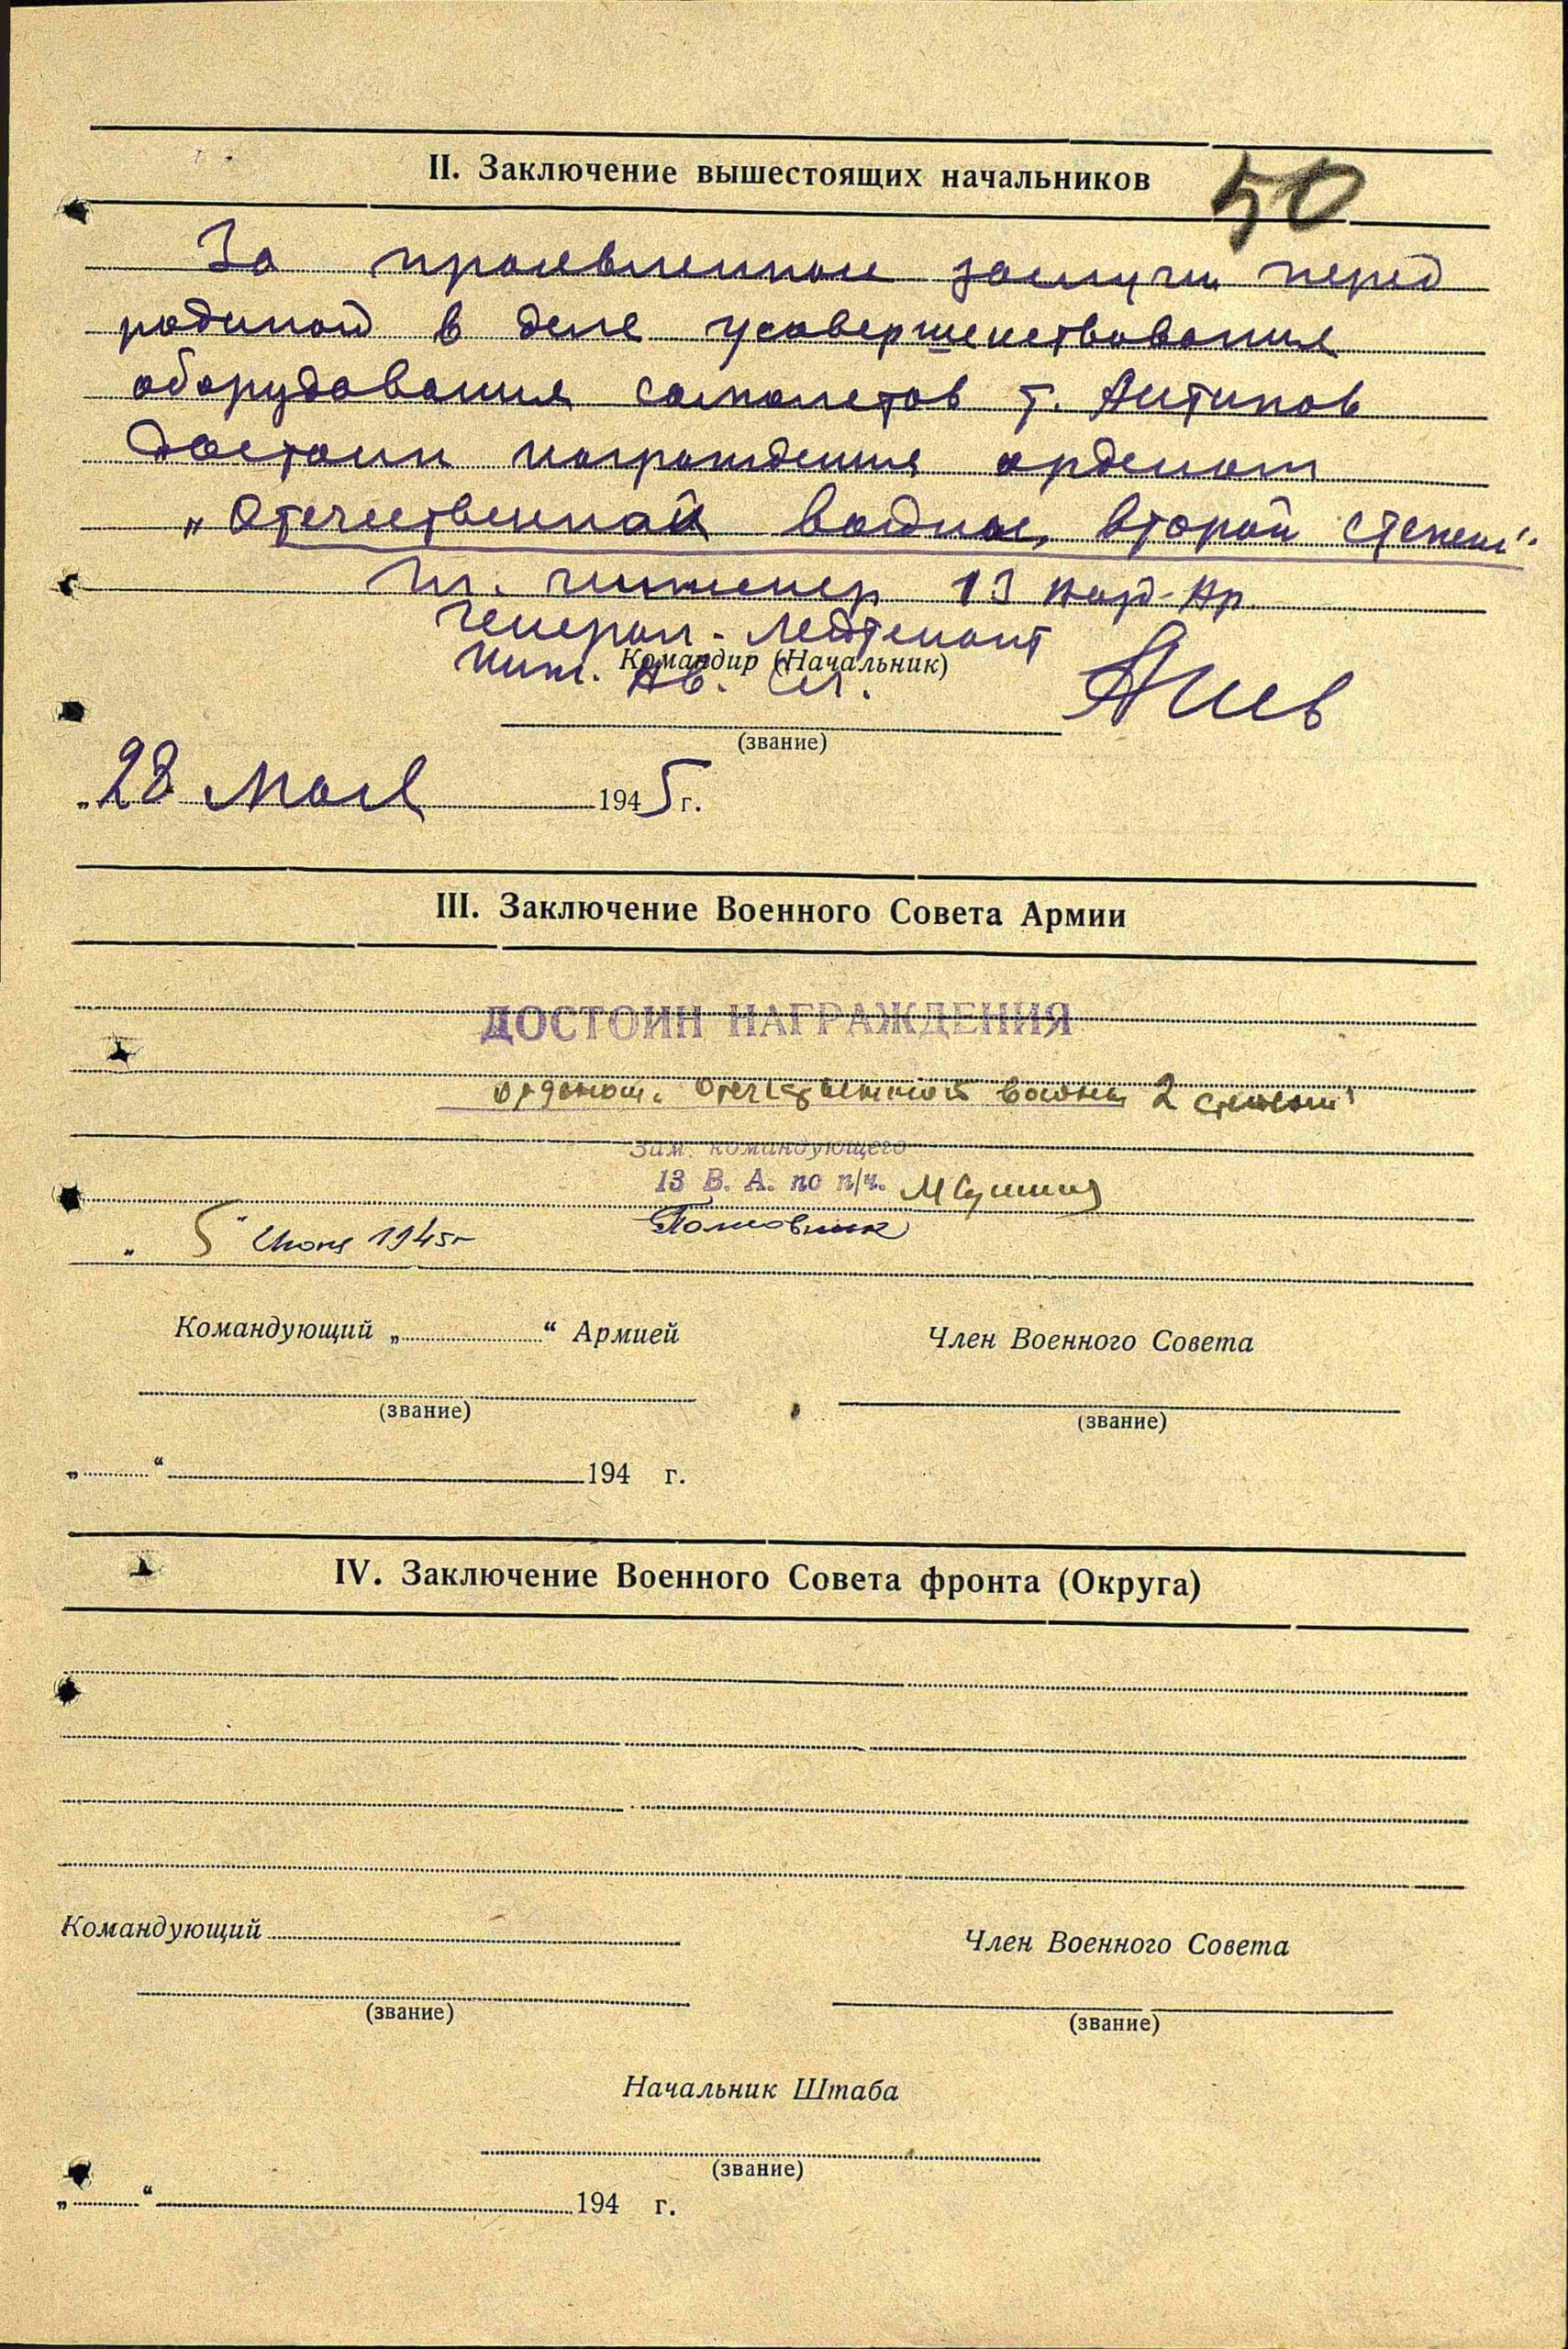 II. Заключение вышестоящих начальников
50
За проявленные заслуги перед
родиной в деле усовершенствования
оборудования самолетов т. Антипов
достоин награждения орденом
„Отечественной войны, второй степени".
инженер 13
Генерал-лейтенант
Инж. Ав. Сл.
Командир (Начальник)
(звание)
„28 мая 1945 г.
III. Заключение Военного Совета Армии
ДОСТОИН НАГРАЖДЕНИЯ
орденом „Отечественной войны 2 степени"
Зам. командующего
13 В. А. по п/ч.
Полковник
„5" июня 1945 г
Командующий „ “ Армией
Член Военного Совета
(звание)
(звание)
„ “ 194 г.
IV. Заключение Военного Совета фронта (Округа)
Командующий
Член Военного Совета
(звание)
(звание)
Начальник Штаба
(звание)
„ “ 194 г.